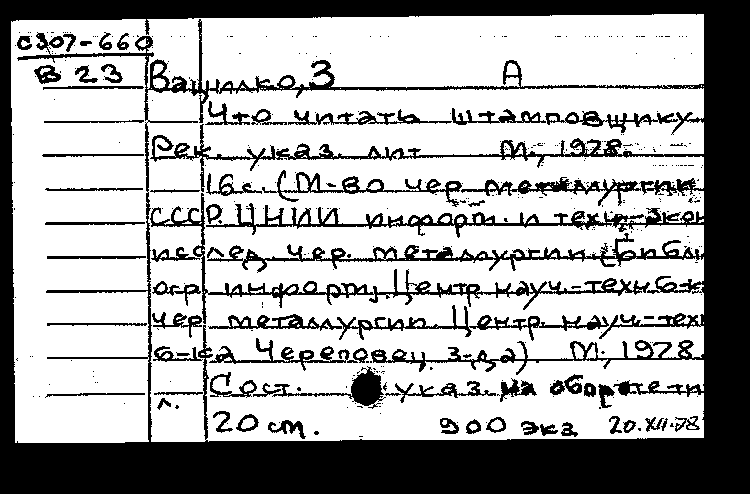 С307-660
В 23 Ващилко, З А
Что читать штамповщику
Рек. указ. лит М., 1978.
16 с. (М-во чер. металлургии
СССР. ЦНИИ информ. и техн-экон
исслед. чер. металлургии. Библи
огр. информ. Центр науч.-техн. б-ка
чер металлургии. Центр. науч.-техн
б-ка Череповец. з-да). М., 1978.
Сост. указ. на обороте ти
л.
20 см. 900 экз 20.XII.78